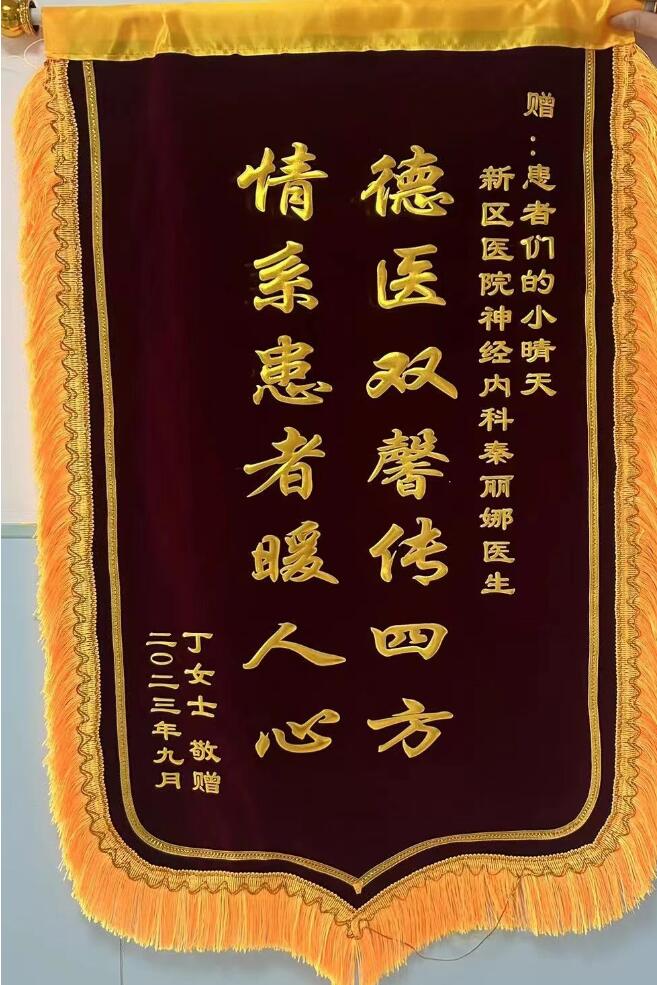 赠:患者们的小晴天
新区医院神经内科秦丽娜医生
德医双馨传四方
情系患者暖人心
丁女士 敬赠
二〇二三年九月